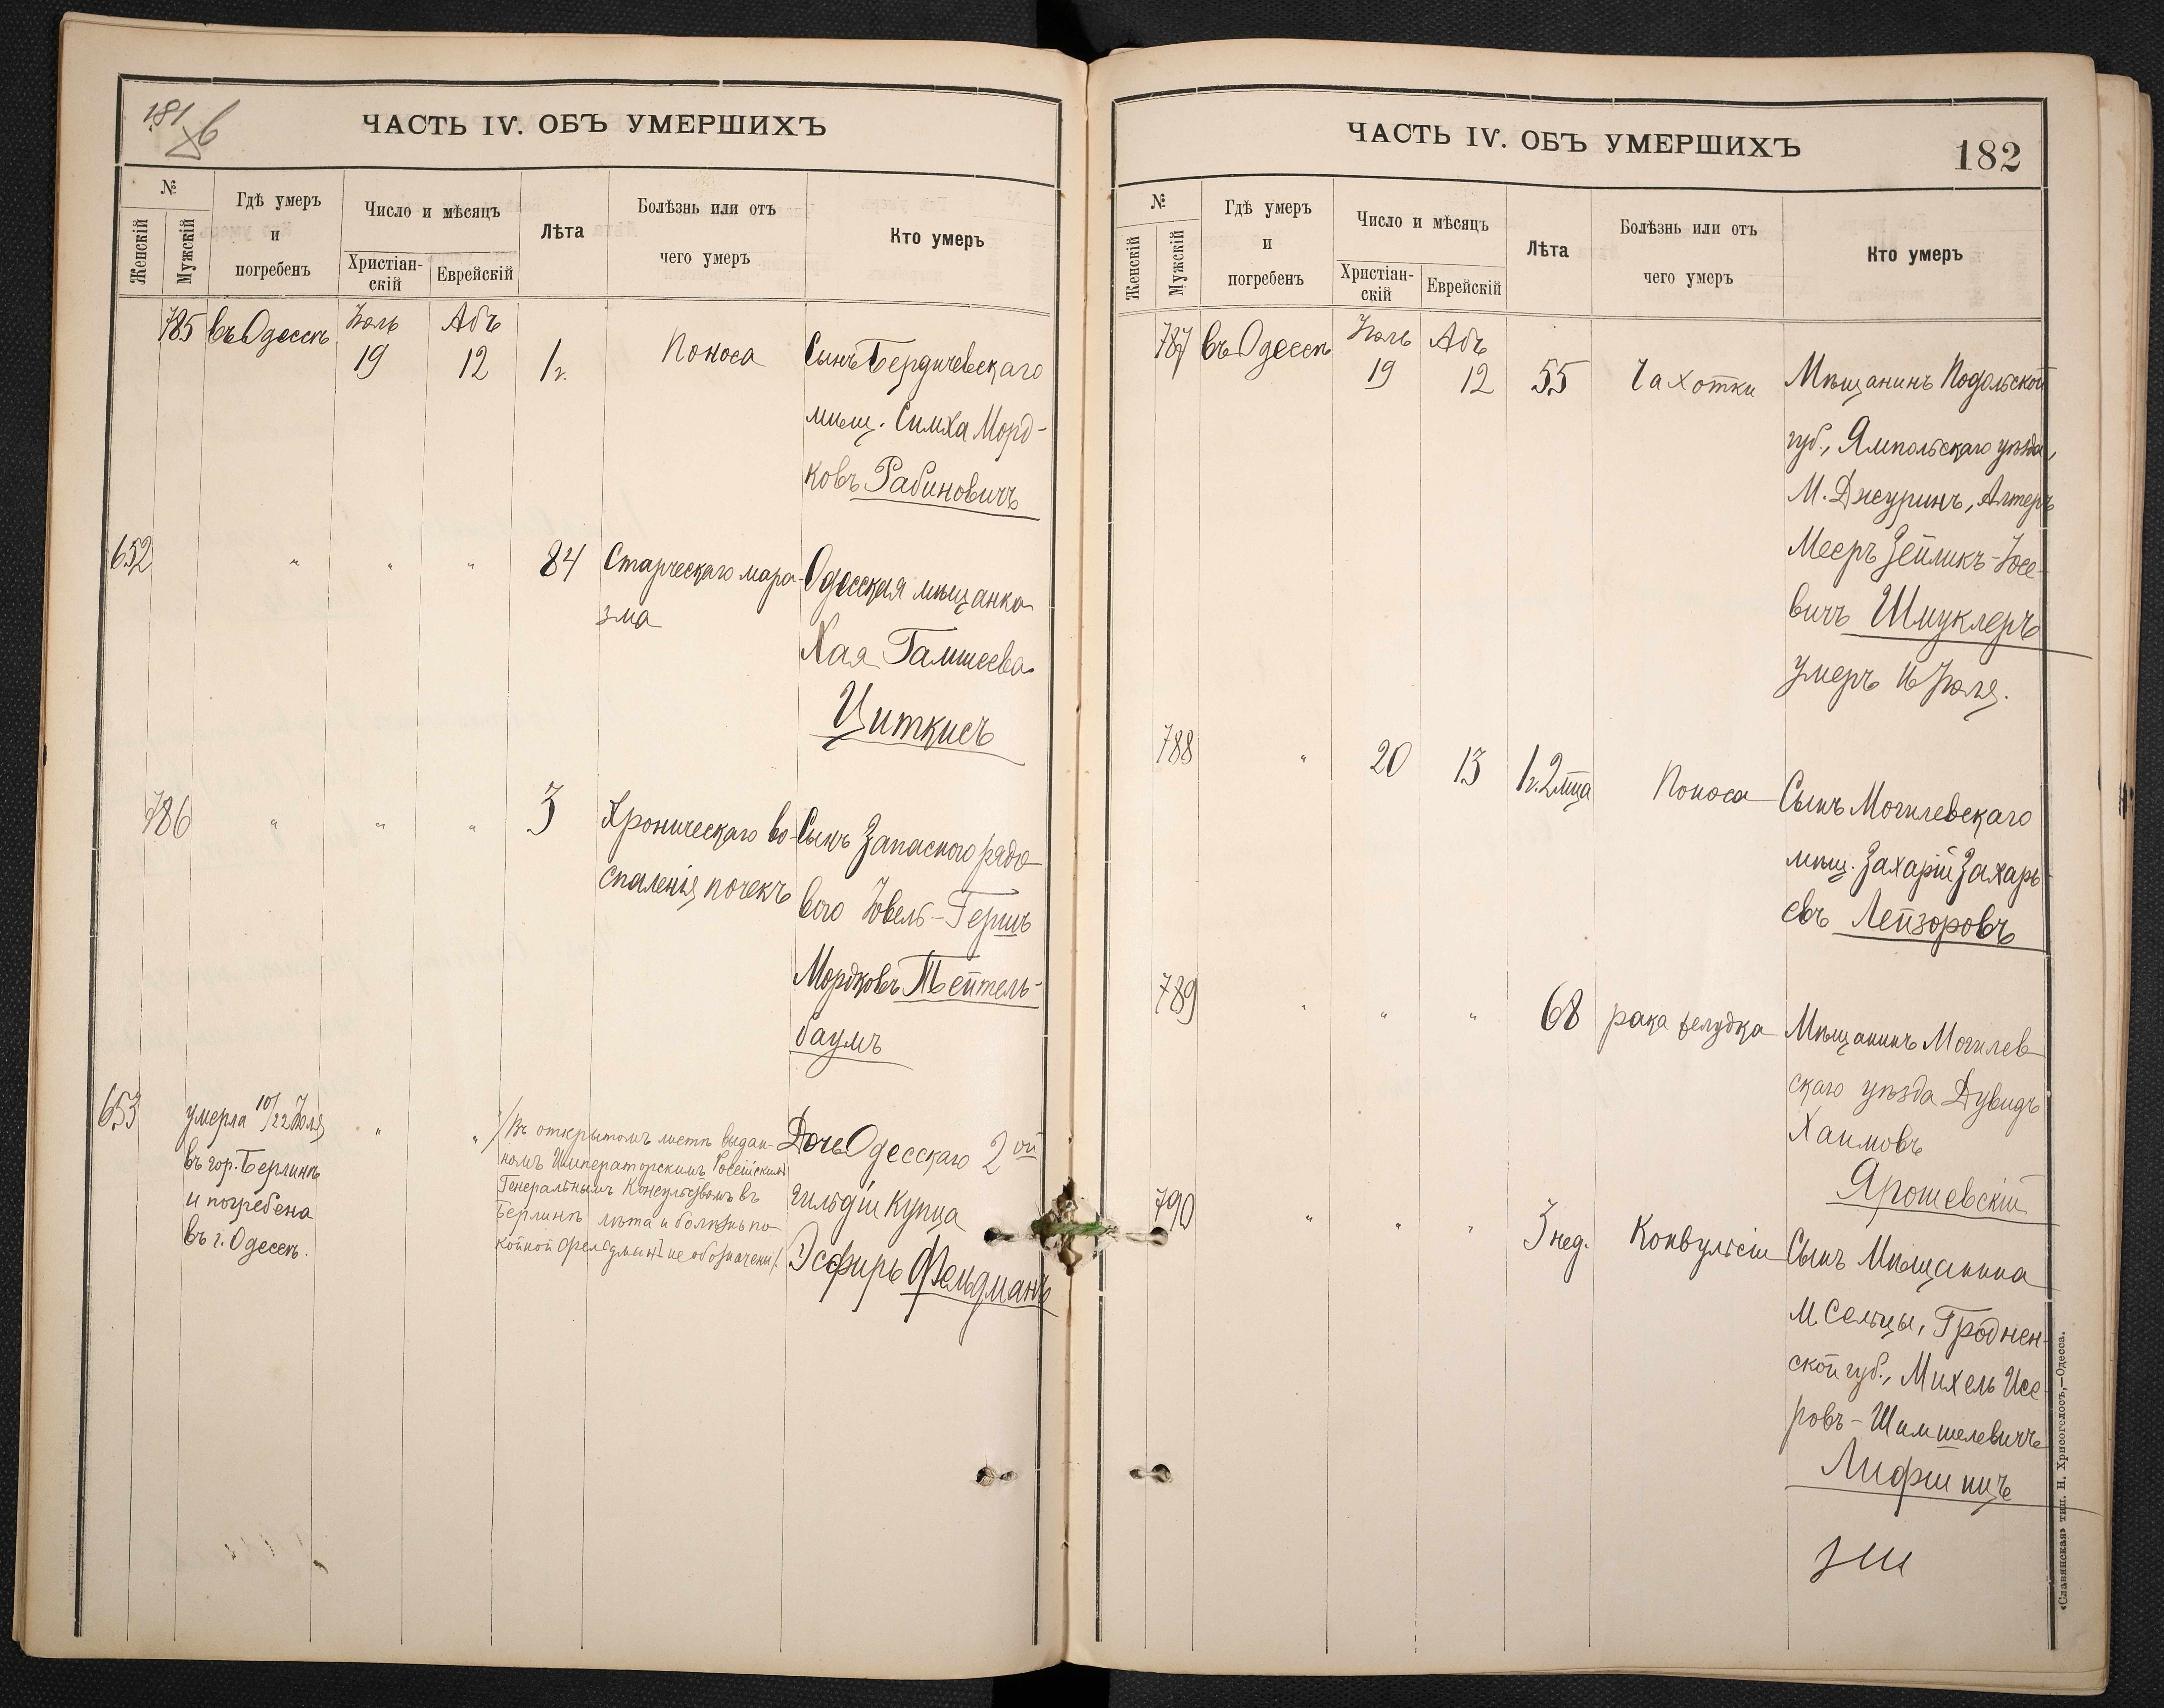 181 об
ЧАСТЬ IV. ОБЪ УМЕРШИХЪ
№
Женскій
Мужскій
Гдѣ умеръ
и
погребенъ
Число и мѣсяцъ
Христіан-
скій
Еврейскій
Лѣта
Болѣзнь или отъ
чего умеръ
Кто умеръ
785 въ Одессѣ Іюль Абъ
19 12 1 г. Поноса Сынъ Бердичевскаго
мѣщ. Симха Морд-
ковъ Рабиновичъ
652 " " " 84 Старческаго мара- Одесская мѣщанка
зма
Хая Гамшеева
Циткисъ
786 " " " 3 Хроническаго во- Сынъ Запаснаго рядо-
спаленія почекъ вого Іовель-Гершъ
Мордковъ Тейтель-
баумъ
653 умерла 10/22 Іюля " "
въ гор. Берлинѣ
и погребена
въ г. Одессѣ.
/Въ открытомъ листѣ выдан-
номъ Императорскимъ Россійскимъ
Генеральнымъ Консульствомъ въ
Берлинѣ лѣта и болѣзнь по-
койной Фельдманъ не обозначены/.
Дочь Одесскаго 2ой
гильдіи купца
Эсфирь Фельдманъ
ЧАСТЬ IV. ОБЪ УМЕРШИХЪ
182
№
Женскій
Мужскій
Гдѣ умеръ
и
погребенъ
Число и мѣсяцъ
Христіан-
скій
Еврейскій
Лѣта
Болѣзнь или отъ
чего умеръ
Кто умеръ
787 въ Одессѣ Іюль Абъ
19 12 55 Чахотки Мѣщанинъ Подольской
губ., Ямпольскаго уѣзда,
М. Джуринъ, Алтеръ
Мееръ Зейликъ-Іосе-
вичъ Шмуклеръ
умеръ 16 Іюля.
788 " 20 13 1 г. 2 мца Поноса Сынъ Могилевскаго
мѣщ. Захарій Захарь-
евъ Лейзоровъ
789 " " " 68 рака желудка Мѣщанинъ Могилев-
скаго уѣзда Дувидъ
Хаимовъ
Ярошевскій
790 " " " 3 нед. Конвульсіи Сынъ Мѣщанина
М. Сельцы, Гроднен-
ской губ., Михель Исе-
ровъ-Шимшелевичъ
Лифшицъ
«Славянская» тип. Н. Хрисогелосъ,—Одесса.